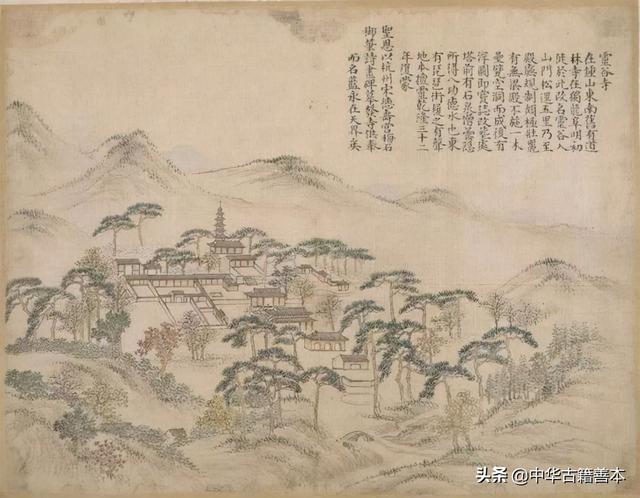 靈谷寺
在鍾山東南舊有道
林寺在獨龍阜明初
徙於此改名靈谷入
山門松逕五里乃至
殿廡規制頗極壯麗
有無梁殿不施一木
壘甓空洞而成後有
浮圖即寶誌改塟處
塔前有石泉僧曇隱
所得八功德水也東
有琵琶街履之有聲
地本擅靈乾隆三十二
年復蒙
聖恩以杭州宋德壽宮梅石
御筆詩畫碑摹發寺供奉
而名藍永在天界矣
头条 @中华古籍善本